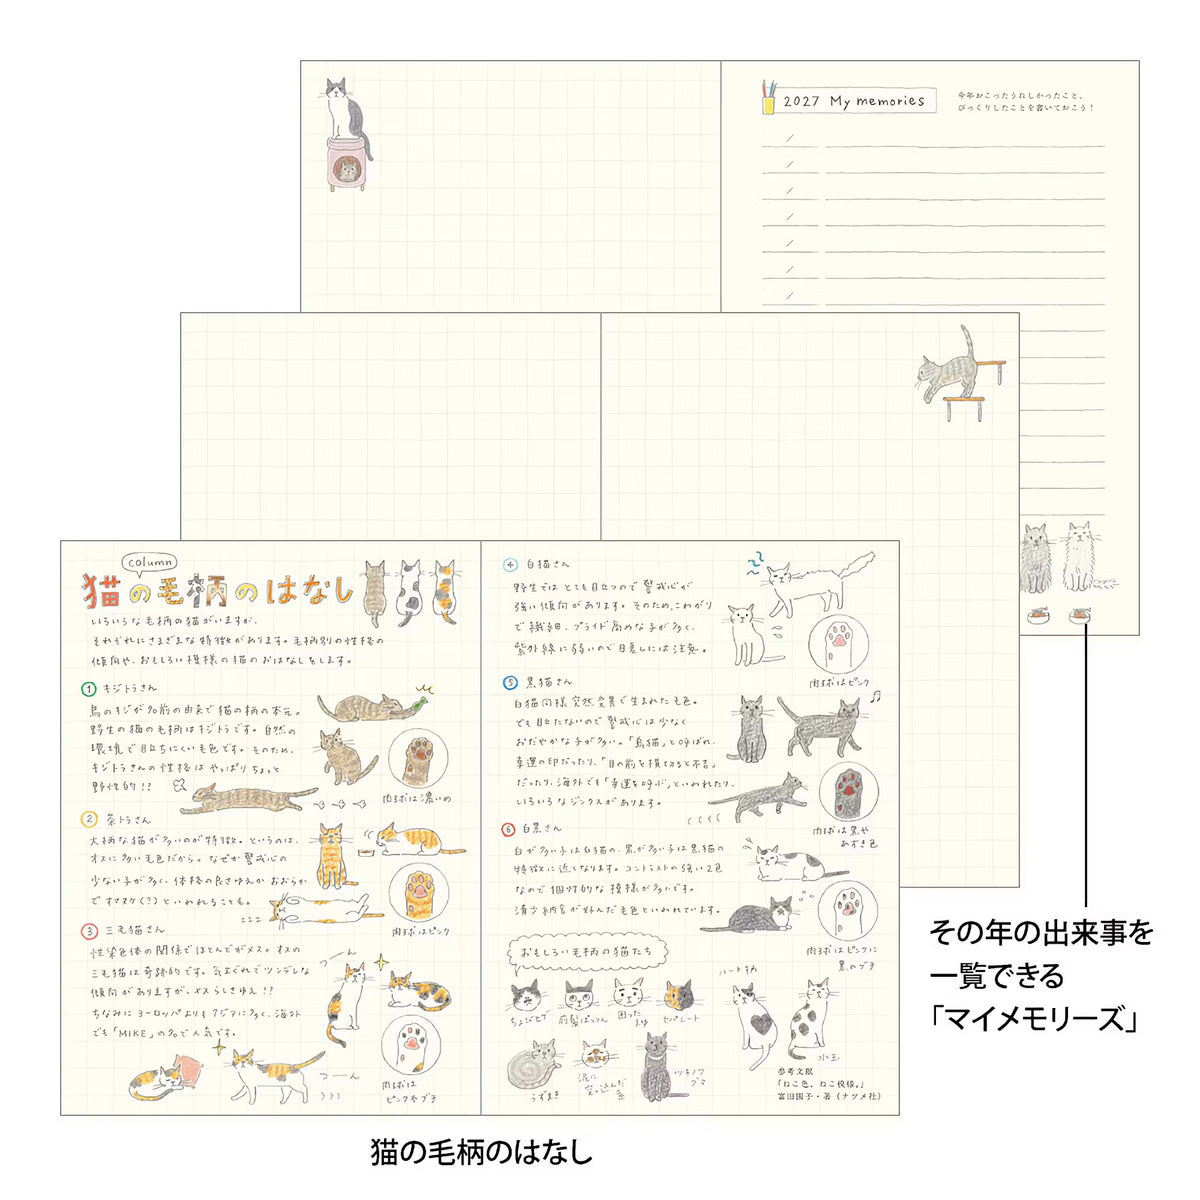 2027 My memories
今年おこったうれしかったこと、
びっくりしたことを書いておこう！
column
猫の毛柄のはなし
いろいろな毛柄の猫がいますが、
それぞれにさまざまな特徴があります。毛柄別の性格の
傾向や、おもしろい模様の猫のおはなしをします。
1 キジトラさん
鳥のキジが名前の由来で猫の柄の本元。
野生の猫の毛柄はキジトラです。自然の
環境で目立ちにくい毛色です。そのため、
キジトラさんの性格はやっぱりちょっと
野性的!?
肉球は濃いめ
2 茶トラさん
大柄な猫が多いのが特徴。というのは、
オスに多い毛色だから。なぜか警戒心の
少ない子が多く、体格の良さゆえか おおらか
でオマヌケ(?)といわれることも。
ニニニ
肉球はピンク
3 三毛猫さん
性染色体の関係でほとんどがメス。オスの
三毛猫は奇跡的です。気まぐれでツンデレな
傾向がありますが、メスらしさゆえ!?
ちなみにヨーロッパよりもアジアに多く、海外
でも「MIKE」の名で人気です。
つーん
つーん
肉球は
ピンクやブチ
4 白猫さん
野生ではとても目立つので警戒心が
強い傾向があります。そのため、こわがり
で繊細、プライド高めな子が多く、
紫外線に弱いので日差しには注意。
肉球はピンク
5 黒猫さん
白猫同様突然変異で生まれた毛色。
でも目立たないので警戒心は少なく
おだやかな子が多い。「烏猫」と呼ばれ、
幸運の印だったり、「目の前を横切ると不吉」
だったり、海外でも「幸運を呼ぶ」といわれたり、
いろいろなジンクスがあります。
肉球は黒や
あずき色
6 白黒さん
白が多い子は白猫の、黒が多い子は黒猫の
特徴に近くなります。コントラストの強い2色
なので個性的な模様が多いです。
清少納言が好んだ毛色といわれています。
肉球はピンクに
黒のブチ
おもしろい毛柄の猫たち
ちょびヒゲ
前髪ぱっつん
困ったまゆ
セパレート
ハート柄
水玉
うずまき
泥に
突っ込んだ
系
ツキノワ
グマ
参考文献
「ねこ色、ねこ模様。」
富田園子・著（ナツメ社）
その年の出来事を
一覧できる
「マイメモリーズ」
猫の毛柄のはなし